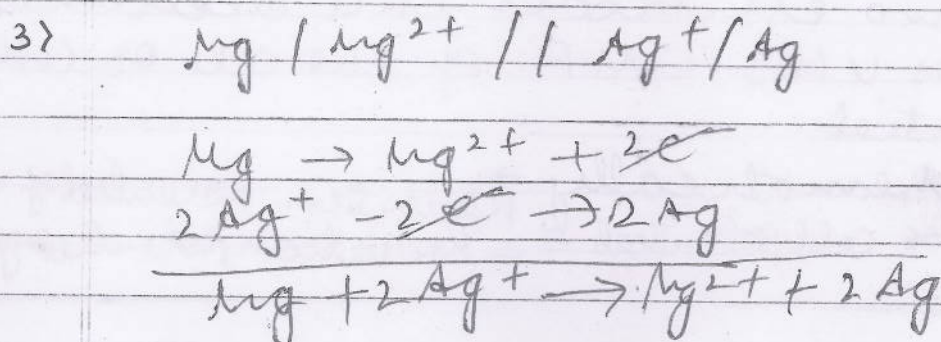 3) Mg / Mg²⁺ // Ag⁺ / Ag
Mg → Mg²⁺ + 2e⁻
2Ag⁺ - 2e⁻ → 2Ag
Mg + 2Ag⁺ → Mg²⁺ + 2Ag